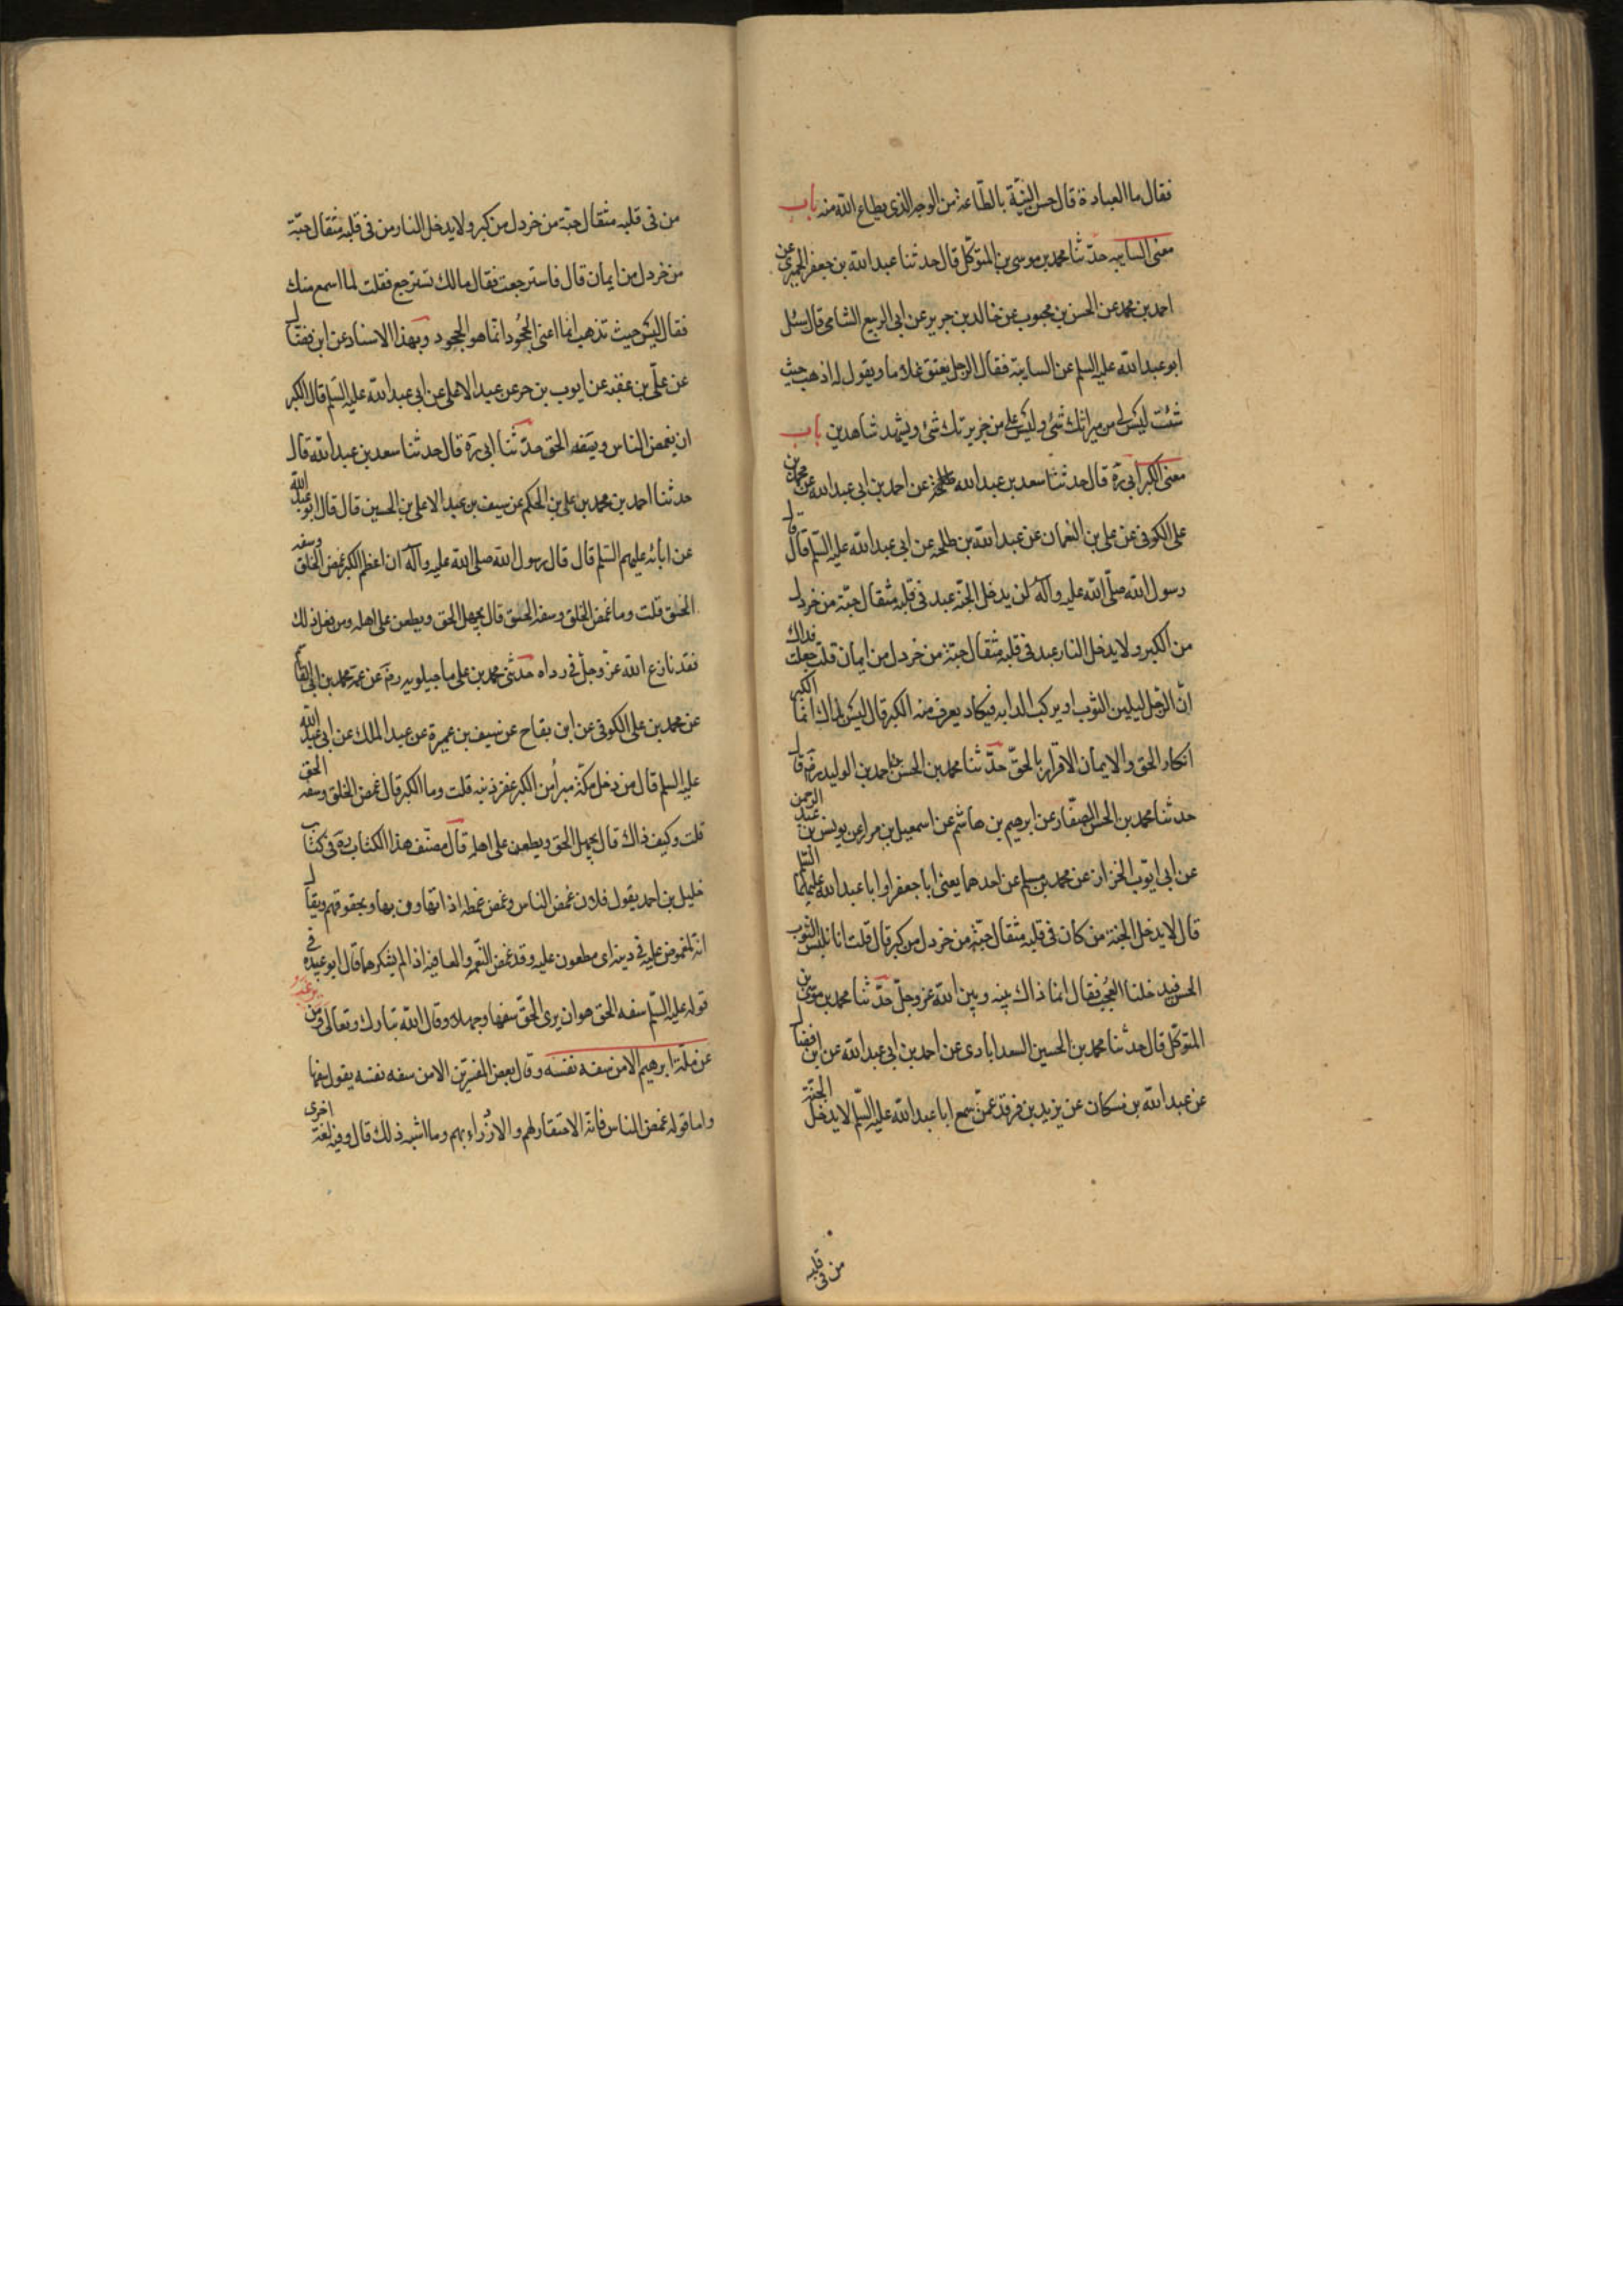 فقال ما العبادة قال حسن النية بالطاعة من الوجه الذى يطاع الله منه باب
معنى السايبه حدثنا محمد بن موسى بن المتوكل قال حدثنا عبد الله بن جعفر الحميرى عن
احمد بن محمد عن الحسن بن محبوب عن خالد بن جرير عن ابى الربيع الشامى قال سئل
ابو عبد الله عليه السلم عن السايبة فقال الرجل يعتق غلاما ويقول له اذهب حيث
شئت ليس لى من ميراثك شئ وليس على من جريرتك شئ ويشهد شاهدين باب
معنى الكبر ابى ره قال حدثنا سعد بن عبد الله عن احمد بن ابى عبد الله عن محمد بن
على الكوفى عن على بن النعمان عن عبد الله بن طلحه عن ابى عبد الله عليه السلم قال قال
رسول الله صلى الله عليه وآله لن يدخل الجنة عبد فى قلبه مثقال حبة من خردل
من الكبر ولا يدخل النار عبد فى قلبه مثقال حبة من خردل من ايمان قلت جعلت فداك
ان الرجل ليلبس الثوب او يركب الدابه فيكاد يعرف منه الكبر قال ليس بذاك انما الكبر
انكار الحق والايمان الاقرار بالحق حدثنا محمد بن الحسن بن احمد بن الوليد ره قال
حدثنا محمد بن الحسن الصفار عن ابرهيم بن هاشم عن اسمعيل بن مرار عن يونس بن عبد الرحمن
عن ابى ايوب الخزاز عن محمد بن مسلم عن احدهما يعنى ابا جعفر او ابا عبد الله عليهما السلم
قال لا يدخل الجنة من كان فى قلبه مثقال حبة من خردل من كبر قال قلت انا نلبس الثوب
الحسن فيدخلنا العجب فقال انما ذاك بينه وبين الله عز وجل حدثنا محمد بن موسى بن
المتوكل قال حدثنا محمد بن الحسين السعدابادى عن احمد بن ابى عبد الله عن ابن فضال
عن عبد الله بن مسكان عن يزيد بن فرقد عمن سمع ابا عبد الله عليه السلم لا يدخل الجنة
من فى قلبه
من فى قلبه مثقال حبة من خردل من كبر ولا يدخل النار من فى قلبه مثقال حبة
من خردل من ايمان قال فاسترجعت فقال مالك تسترجع فقلت لما اسمع منك
فقال ليس حيث تذهب انما اعنى الجحود انما هو الجحود وبهذا الاسناد عن ابن فضال
عن على بن عقبه عن ايوب بن حر عن عبد الاعلى عن ابى عبد الله عليه السلم قال الكبر
ان يغمص الناس ويسفه الحق حدثنا ابى ره قال حدثنا سعد بن عبد الله قال
حدثنا احمد بن محمد بن على بن الحكم عن سيف بن عبد الاعلى بن الحسين قال قال ابو عبد الله
عن ابائه عليهم السلم قال قال رسول الله صلى الله عليه وآله ان اعظم الكبر غمص الخلق وسفه
الحق قلت وما غمص الخلق وسفه الحق قال يجهل الحق ويطعن على اهله ومن فعل ذلك
فقد نازع الله عز وجل فى رداه حدثنى محمد بن على ماجيلويه ره عن عمه محمد بن ابى القاسم
عن محمد بن على الكوفى عن ابن بقاح عن سيف بن عميرة عن عبد الملك عن ابى عبد الله
عليه السلم قال من دخل مكة مبرأ من الكبر غفر ذنبه قلت وما الكبر قال غمص الخلق وسفه الحق
قلت وكيف ذاك قال يجهل الحق ويطعن على اهله قال مصنف هذا الكتاب ره فى كتاب
خليل بن احمد يقول فلان غمص الناس وغمص غمطه اذا تهاون بها وبحقوقهم ويقال
انه لمغموص عليه فى دينه اى مطعون عليه وقد غمص النعمه والعافيه اذا لم يشكرها قال ابو عبيده فى
قوله عليه السلم سفه الحق هو ان يرى الحق سفها وجهلا وقال الله تبارك وتعالى ومن يرغب
عن ملة ابرهيم الا من سفه نفسه وقال بعض المفسرين الا من سفه نفسه يقول سفهها
واما قوله غمص الناس فانه الاحتقار لهم والازراء بهم وما اشبه ذلك قال وفيه لغة اخرى